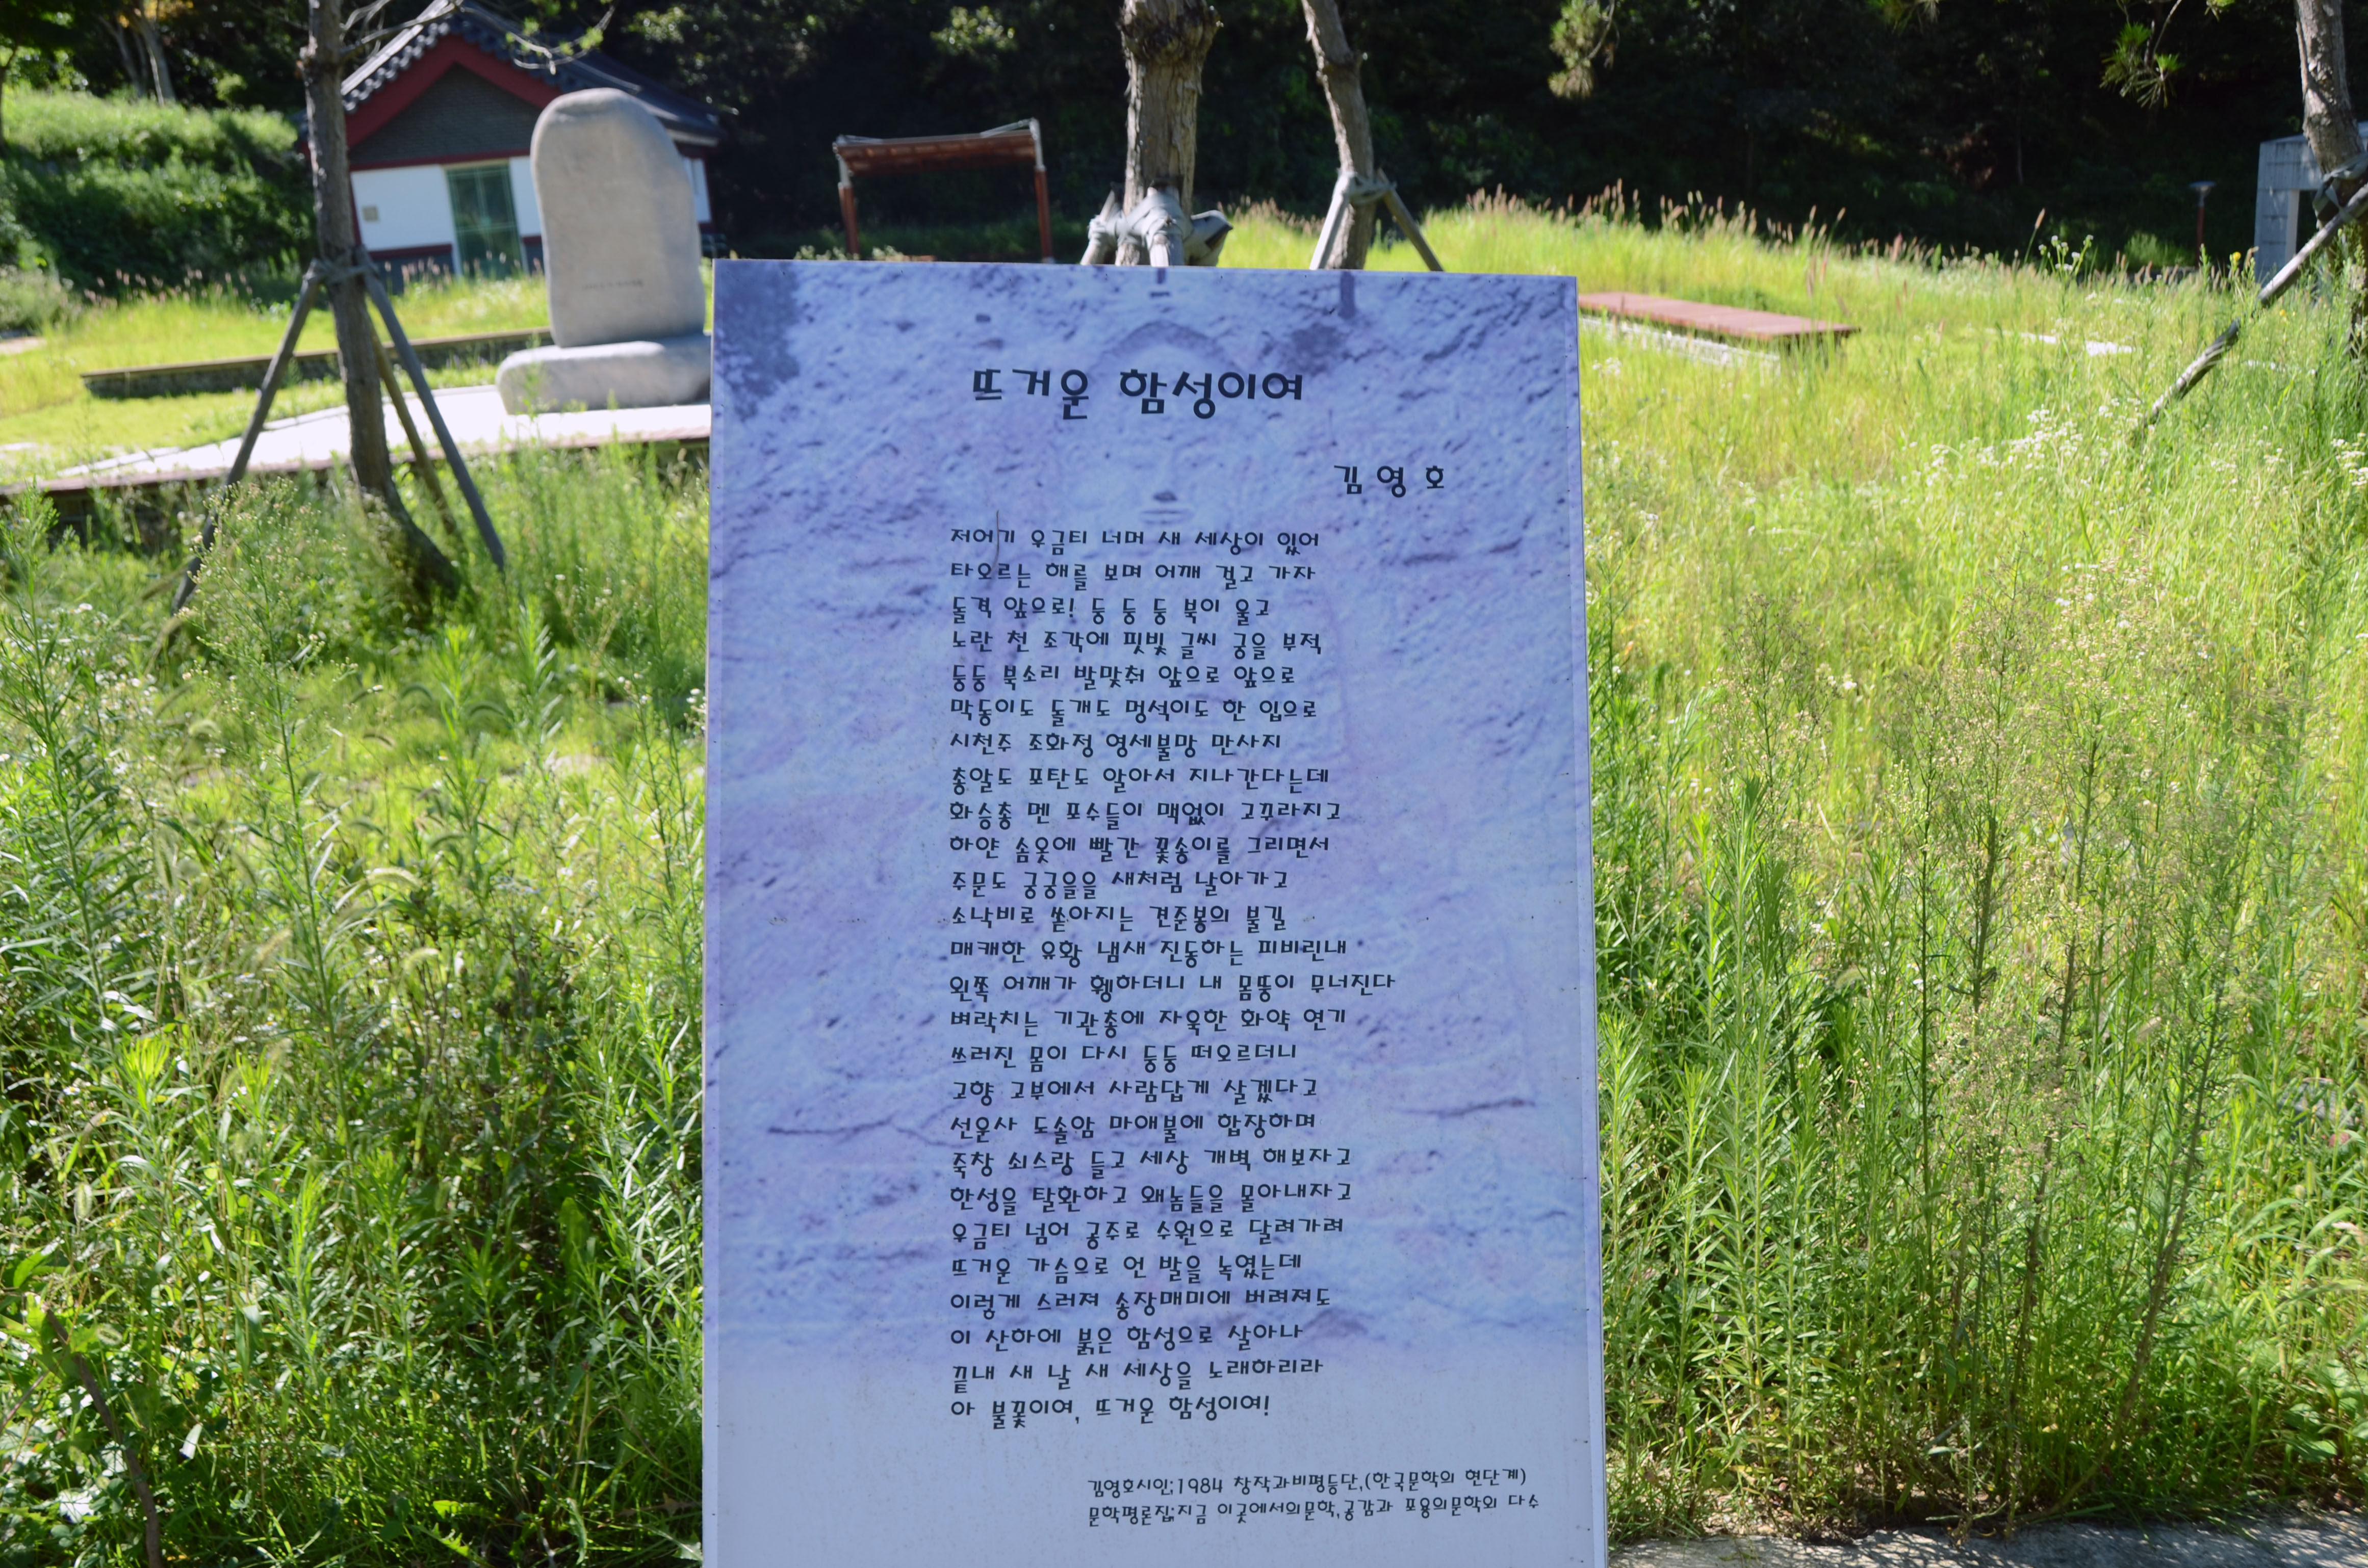 뜨거운 함성이여
김영호
저어기 우금티 너머 새 세상이 있어
타오르는 해를 보며 어깨 걸고 가자
돌격 앞으로! 둥 둥 둥 북이 울고
노란 천 조각에 핏빛 글씨 궁을 부적
둥둥 북소리 발맞춰 앞으로 앞으로
막동이도 돌개도 멍석이도 한 입으로
시천주 조화정 영세불망 만사지
총알도 포탄도 알아서 지나간다는데
화승총 멘 포수들이 맥없이 고꾸라지고
하얀 솜옷에 빨간 꽃송이를 그리면서
주문도 궁궁을을 새처럼 날아가고
소낙비로 쏟아지는 견준봉의 불길
매캐한 유황 냄새 진동하는 피비린내
왼쪽 어깨가 휑하더니 내 몸뚱이 무너진다
벼락치는 기관총에 자욱한 화약 연기
쓰러진 몸이 다시 둥둥 떠오르더니
고향 고부에서 사람답게 살겠다고
선운사 도솔암 마애불에 합장하며
죽창 쇠스랑 들고 세상 개벽 해보자고
한성을 탈환하고 왜놈들을 몰아내자고
우금티 넘어 공주로 수원으로 달려가려
뜨거운 가슴으로 언 발을 녹였는데
이렇게 스러져 송장매미에 버려져도
이 산하에 붉은 함성으로 살아나
끝내 새 날 새 세상을 노래하리라
아 불꽃이여, 뜨거운 함성이여!
김영호시인;1984 창작과비평등단,(한국문학의 현단계)
문학평론집;지금 이곳에서의문학,공감과 포용의문학외 다수